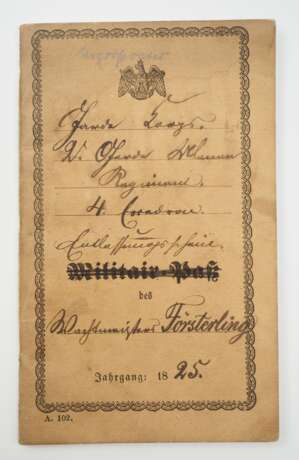 Garde Corps.
2. Garde Ulanen
Regiment.
4. Escadron.
Entlassungsschein
Militair-Paß
des
Wachtmeisters Försterling
Jahrgang: 18 25.
A. 102.